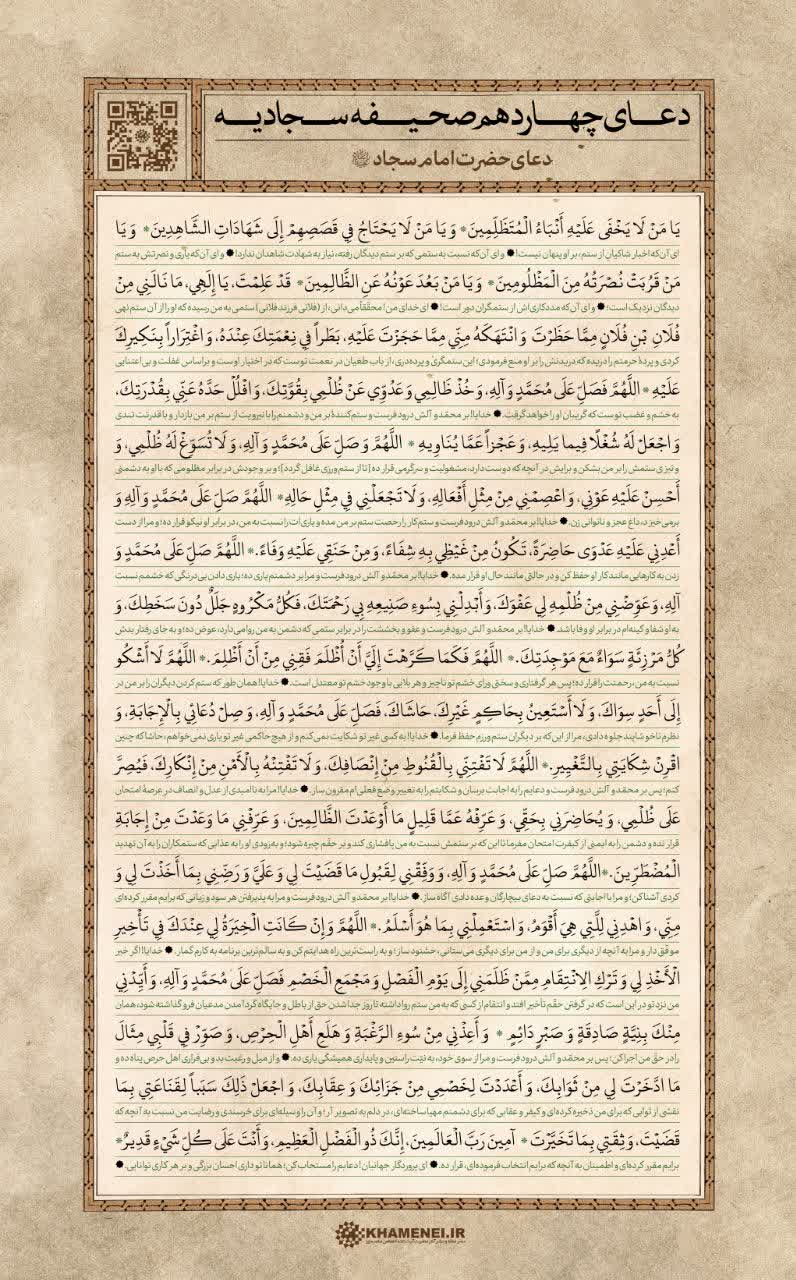 دعای چهاردهم صحیفه سجادیه
دعای حضرت امام سجاد
یَا مَنْ لَا یَخْفَى عَلَیْهِ أَنْبَاءُ الْمُتَظَلِّمِینَ * وَ یَا مَنْ لَا یَحْتَاجُ فِی قَصَصِهِمْ إِلَى شَهَادَاتِ الشَّاهِدِینَ * وَ یَا
ای آن‌که اخبار شاکیان از ستم، بر او پنهان نیست! ● و ای آن‌که نسبت به ستمی که بر ستم دیدگان رفته، نیاز به شهادت شاهدان ندارد! ● و ای آن‌که یاری و نصرتش به ستم
مَنْ قَرُبَتْ نُصْرَتُهُ مِنَ الْمَظْلُومِینَ * وَ یَا مَنْ بَعُدَ عَوْنُهُ عَنِ الظَّالِمِینَ * قَدْ عَلِمْتَ، یَا إِلَهِی، مَا نَالَنِی مِنْ
دیدگان نزدیک است؛ ● و ای آن‌که مددکاری‌اش از ستمگران دور است! ● ای خدای من! محققاً می‌دانی، از (فلانی فرزند فلانی) ستمی به من رسیده که او را از آن ستم نهی
فُلَانِ بْنِ فُلَانٍ مِمَّا حَظَرْتَ وَ انْتَهَکَهُ مِنِّی مِمَّا حَجَزْتَ عَلَیْهِ، بَطَراً فِی نِعْمَتِکَ عِنْدَهُ، وَ اغْتِرَاراً بِنَکِیرِکَ
کردی و پردهٔ حرمتم را دریده که دریدنش را بر او منع فرمودی؛ این ستمگری و پرده‌دری، از باب طغیان در نعمت توست که در اختیار اوست و براساس غفلت و بی‌اعتنایی
عَلَیْهِ * اللَّهُمَّ فَصَلِّ عَلَى مُحَمَّدٍ وَ آلِهِ، وَ خُذْ ظَالِمِی وَ عَدُوِّی عَنْ ظُلْمِی بِقُوَّتِکَ، وَ افْلُلْ حَدَّهُ عَنِّی بِقُدْرَتِکَ،
به خشم و غضب توست که گریبان او را خواهد گرفت. ● خدایا! بر محمّد و آلش درود فرست و ستم‌کنندهٔ بر من و دشمنم را با نیرویت از ستم بر من بازدار و با قدرتت تندی
وَ اجْعَلْ لَهُ شُغْلًا فِیما یَلِیهِ، وَ عَجْزاً عَمَّا یُنَاوِیهِ * اللَّهُمَّ وَ صَلِّ عَلَى مُحَمَّدٍ وَ آلِهِ، وَ لَا تُسَوِّغْ لَهُ ظُلْمِی، وَ
و تیزی ستمش را بر من بشکن و برایش در آنچه که دوست دارد، مشغولیت و سرگرمی قرار ده [تا از ستم ورزی غافل گردد]؛ و بر وجودش در برابر مظلومی که با او به دشمنی
أَحْسِنْ عَلَیْهِ عَوْنِی، وَ اعْصِمْنِی مِنْ مِثْلِ أَفْعَالِهِ، وَ لَا تَجْعَلْنِی فِی مِثْلِ حَالِهِ * اللَّهُمَّ صَلِّ عَلَى مُحَمَّدٍ وَ آلِهِ وَ
برمی‌خیزد، داغ عجز و ناتوانی زن. ● خدایا! بر محمّد و آلش درود فرست و ستم‌کار را رحصت ستم بر من مده و یاری‌ات را نسبت به من، در برابر او نیکو قرار ده؛ و مرا از دست
أَعْدِنِی عَلَیْهِ عَدْوَى حَاضِرَةً، تَکُونُ مِنْ غَیْظِی بِهِ شِفَاءً، وَ مِنْ حَنَقِی عَلَیْهِ وَفَاءً. * اللَّهُمَّ صَلِّ عَلَى مُحَمَّدٍ وَ
زدن به کارهایی مانند کار او حفظ کن و در حالتی مانند حال او قرار مده. ● خدایا! بر محمّد و آلش درود فرست و مرا بر دشمنم یاری ده؛ یاری دادن بی‌درنگی که خشمم نسبت
آلِهِ، وَ عَوِّضْنِی مِنْ ظُلْمِهِ لِی عَفْوَکَ، وَ أَبْدِلْنِی بِسُوءِ صَنِیعِهِ بِی رَحْمَتَکَ، فَکُلُّ مَکْرُوهٍ جَلَلٌ دُونَ سَخَطِکَ، وَ
به او شفا و کینه‌ام در برابر او وفا باشد. ● خدایا! بر محمّد و آلش درود فرست و عفو و بخششت را در برابر ستمی که دشمن به من روا می‌دارد، عوض ده؛ و به جای رفتار بدش
کُلُّ مَرْزِئَةٍ سَوَاءٌ مَعَ مَوْجِدَتِکَ. * اللَّهُمَّ فَکَمَا کَرَّهْتَ إِلَیَّ أَنْ أُظْلَمَ فَقِنِی مِنْ أَنْ أَظْلِمَ. * اللَّهُمَّ لَا أَشْکُو
نسبت به من، رحمتت را قرار ده؛ پس هر گرفتاری و سختی ورای خشم تو ناچیز و هر بلایی با وجود خشم تو معتدل است. ● خدایا! همان طور که ستم کردن دیگران را بر من در
إِلَى أَحَدٍ سِوَاکَ، وَ لَا أَسْتَعِینُ بِحَاکِمٍ غَیْرِکَ، حَاشَاکَ، فَصَلِّ عَلَى مُحَمَّدٍ وَ آلِهِ، وَ صِلْ دُعَائِی بِالْإِجَابَةِ، وَ
نظرم ناخوشایند جلوه دادی، مرا از این‌که بر دیگران ستم ورزم حفظ فرما. ● خدایا! به کسی غیر تو شکایت نمی‌کنم و از هیچ حاکمی غیر تو یاری نمی‌خواهم، حاشا که چنین
اقْرِنْ شِکَایَتِی بِالتَّغْیِیرِ. * اللَّهُمَّ لَا تَفْتِنِّی بِالْقُنُوطِ مِنْ إِنْصَافِکَ، وَ لَا تَفْتِنْهُ بِالْأَمْنِ مِنْ إِنْکَارِکَ، فَیُصِرَّ
کنم؛ پس بر محمّد و آلش درود فرست و دعایم را به اجابت برسان و شکایتم را به تغییر وضع فعلی‌ام مقرون ساز. ● خدایا! مرا به ناامیدی از عدل و انصاف در عرصهٔ امتحان
عَلَى ظُلْمِی، وَ یُحَاضِرَنِی بِحَقِّی، وَ عَرِّفْهُ عَمَّا قَلِیلٍ مَا أَوْعَدْتَ الظَّالِمِینَ، وَ عَرِّفْنِی مَا وَعَدْتَ مِنْ إِجَابَةِ
قرار نده و دشمن را به ایمنی از کیفرت امتحان مفرما تا این که بر ستمش نسبت به من پافشاری کند و بر حقّم چیره شود؛ و به زودی او را به عذابی که ستمکاران را به آن تهدید
الْمُضْطَرِّینَ. * اللَّهُمَّ صَلِّ عَلَى مُحَمَّدٍ وَ آلِهِ، وَ وَفِّقْنِی لِقَبُولِ مَا قَضَیْتَ لِی وَ عَلَیَّ وَ رَضِّنِی بِمَا أَخَذْتَ لِی وَ
کردی آشنا کن؛ و مرا با اجابتی که نسبت به دعای بیچارگان وعده دادی آگاه ساز. ● خدایا! بر محمّد و آلش درود فرست و مرا به پذیرفتن هر سود و زیانی که برایم مقرر کرده‌ای
مِنِّی، وَ اهْدِنِی لِلَّتِی هِیَ أَقْوَمُ، وَ اسْتَعْمِلْنِی بِمَا هُوَ أَسْلَمُ. * اللَّهُمَّ وَ إِنْ کَانَتِ الْخِیَرَةُ لِی عِنْدَکَ فِی تَأْخِیرِ
موفق دار و مرا به آنچه از دیگری برای من و از من برای دیگری می‌ستانی، خشنود ساز؛ و به راست‌ترین راه هدایتم کن و به سالم‌ترین برنامه به کارم گمار. ● خدایا! اگر خیر
الْأَخْذِ لِی وَ تَرْکِ الِانْتِقَامِ مِمَّنْ ظَلَمَنِی إِلَى یَوْمِ الْفَصْلِ وَ مَجْمَعِ الْخَصْمِ فَصَلِّ عَلَى مُحَمَّدٍ وَ آلِهِ، وَ أَیِّدْنِی
من نزد تو در این است که در گرفتن حقّم تأخیر افتد و انتقام از کسی که به من ستم روا داشته تا روز جدا شدن حق از باطل و جایگاه گرد آمدن مدعیان فرو گذاشته شود، همان
مِنْکَ بِنِیَّةٍ صَادِقَةٍ وَ صَبْرٍ دَائِمٍ * وَ أَعِذْنِی مِنْ سُوءِ الرَّغْبَةِ وَ هَلَعِ أَهْلِ الْحِرْصِ، وَ صَوِّرْ فِی قَلْبِی مِثَالَ
را در حق من اجرا کن؛ پس بر محمّد و آلش درود فرست و مرا از سوی خود، به نیّت راستین و پایداری همیشگی یاری ده. ● و از میل و رغبت بد و بی‌قراری اهل حرص پناه ده و
مَا ادَّخَرْتَ لِی مِنْ ثَوَابِکَ، وَ أَعْدَدْتَ لِخَصْمِی مِنْ جَزَائِکَ وَ عِقَابِکَ، وَ اجْعَلْ ذَلِکَ سَبَباً لِقَنَاعَتِی بِمَا
نقشی از ثوابی که برای من ذخیره کرده‌ای و کیفر و عقابی که برای دشمنم مهیا ساخته‌ای، در دلم به تصویر آر؛ و آن را وسیله‌ای برای خرسندی و رضایت من نسبت به آنچه که
قَضَیْتَ، وَ ثِقَتِی بِمَا تَخَیَّرْتَ * آمِینَ رَبَّ الْعَالَمِینَ، إِنَّکَ ذُو الْفَضْلِ الْعَظِیمِ، وَ أَنْتَ عَلَى کُلِّ شَیْءٍ قَدِیرٌ *
برایم مقرر کرده‌ای و اطمینان به آنچه که برایم انتخاب فرموده‌ای، قرار ده. ● ای پروردگار جهانیان! دعایم را مستجاب کن؛ همانا تو دارای احسان بزرگی و بر هر کاری توانایی. ●
KHAMENEI.IR